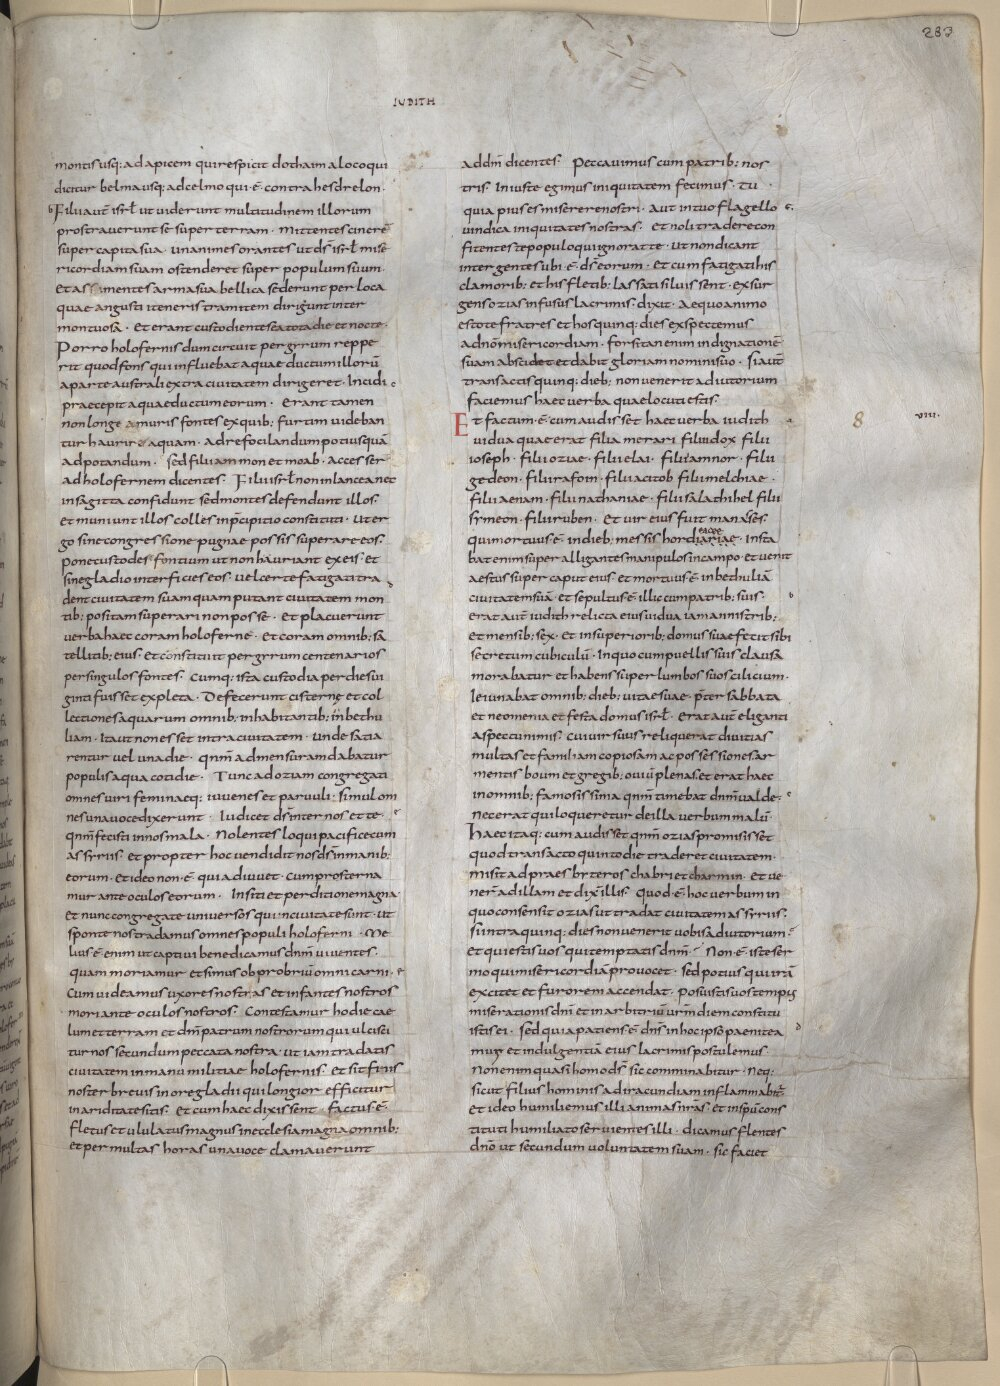 283
IUDITH
montis usq: ad apicem qui respicit dothaim a loco qui
dicitur belma usq: ad celmo qui ē contra hesdrelon·
Filii aut̄ isrł ut viderunt multitudinem illorum
prostraverunt se super terram· Mittentes cinerē
super capita sua· unanimes orantes ut d̄s isrł mise
ricordiam suam ostenderet super populum suum·
et assumentes arma sua bellica sederunt per loca
quae angusti iteneris tramitem dirigunt inter
montuosa· Et erant custodientes ea tota die et nocte·
Porro holofernis dum circuit per gyrum reppe
rit quod fons qui influebat aquae ductum illorū
a parte australi extra civitatem dirigeret· Incidi
praecepit aquaeductum eorum· Erant tamen
non longe a muris fontes ex quib: furtim videban
tur haurire aquam· ad refocilandum potius quā
ad potandum· sed filii ammon et moab· accesser̄
ad holofernem dicentes· Filii isrł non in lancea nec
in sagitta confidunt sed montes defendunt illos·
et muniunt illos colles in p̄cipitio constituti· ut er
go sine congressione pugnae possis superare eos·
pone custodes fontium ut non hauriant ex eis· et
sine gladio interficies eos· vel certe fatigati tra
dent civitatem suam quam putant civitatem mon
tib: positam superari non posse· Et placuerunt
verba haec coram holoferne· et coram omnib: sa
tellitib: eius· et constituit per gyrum centenarios
per singulos fontes· Cumq: ista custodia per dies vi
ginti fuisset expleta· Defecerunt cisternę et col
lectiones aquarum omnib: inhabitantib: in bethu
liam· Ita ut non esset intra civitatem· unde satia
rentur vel una die· qnm̄ ad mensuram dabatur
populis aqua cotidie· Tunc ad oziam congregati
omnes viri feminaeq: iuvenes et parvuli· simul om
nes una voce dixerunt· Iudicet d̄s inter nos et te·
qnm̄ fecisti in nos mala· Nolentes loqui pacifice cum
assyriis· et propter hoc vendidit nos d̄s in manib:
eorum· et ideo non ē· qui adiuvet· cum prosterna
mur ante oculos eorum· In siti et perditione magna·
et nunc congregate universos qui in civitate sunt· ut
sponte nos tradamus omnes populi holoferni· Me
lius ē enim ut captivi benedicamus dnm̄ viventes·
quam moriamur et simus obprobriū omni carni·
cum videamus uxores nostras et infantes nostros
mori ante oculos nostros· Contestamur hodie cae
lum et terram et dm̄ patrum nostrorum qui ulcisci
tur nos secundum peccata nostra· ut iam tradatis
civitatem in manu militiae holofernis· et sit finis
noster brevis in ore gladii qui longior efficitur
in ariditate sitis· Et cum haec dixissent· factus ē
fletus et ululatus magnus in ecclesia magna omnib:
et per multas horas una voce clamaverunt
ad dm̄ dicentes· Peccavimus cum patrib: nos
tris· Iniuste egimus iniquitatem fecimus· Tu
quia pius es miserere nostri· Aut in tuo flagello
vindica iniquitates nostras· Et noli tradere con
fitentes te populo qui ignorat te· ut non dicant
inter gentes ubi ē d̄s eorum· Et cum fatigati his
clamorib: et his fletib: lassati siluissent· exsur
gens ozias infusus lacrimis· dixit· Aequo animo
estote fratres et hos quinq: dies exspectemus
a dnō misericordiam· forsitan enim indignationē
suam abscidet et dabit gloriam nomini suo· Si aut̄
transactis quinq: dieb: non venerit adiutorium
faciemus haec verba quae locuti estis·
Et factum ē· cum audisset haec verba iudith 8 VIII·
vidua quae erat filia merari filii idox filii
ioseph· filii oziae· filii elai· filii amnor· filii
gedeon· filii rafoin· filii acitob filii melchiae·
filii aenam· filii nathaniae· filii salathihel filii
symeon· filii ruben· Et vir eius fuit manases·
qui mortuus ē· in dieb: messis hordiariae· Insta
bat enim super alligantes manipulos in campo· et venit
aestus super caput eius· et mortuus ē in bethuliā
civitatem suā· et sepultus ē illic cum patrib: suis·
erat aut̄ iudith relicta eius vidua iam annis trib:
et mensib: sex· et in superiorib: domus suae fecit sibi
secretum cubiculū· In quo cum puellis suis clausa
morabatur et habens super lumbos suos cilicium·
Ieiunabat omnib: dieb: vitae suae· p̄ter sabbata
et neomenia et festa domus isrł· erat aut̄ eliganti
aspectu nimis· cui vir suus reliquerat divitias
multas et familiam copiosam ac possessiones ar
mentis boum et gregib: oviū plenas· et erat haec
in omnib: famosissima qnm̄ timebat dnm̄ valde·
nec erat qui loqueretur de illa verbum malū·
Haec itaq: cum audisset qnm̄ ozias promisisset
quod transacto quinto die traderet civitatem·
misit ad praesbyteros chabri et charmin· et ve
ner̄ ad illam et dixit illis· Quod ē hoc verbum in
quo consensit ozias ut tradat civitatem assyriis·
si intra quinq: dies non venerit vobis adiutorium·
et qui estis vos qui temptatis dnm̄· Non ē iste ser
mo qui misericordiā provocet· sed potius qui irā
excitet et furorem accendat· posuistis vos tempus
miserationis dnī et in arbitriū vr̄m diem constitu
istis ei· sed quia patiens ē dn̄s in hoc ipso paenitea
mus et indulgentiā eius lacrimis postulemus
Non enim quasi homo d̄s sic comminabitur· Neq:
sicut filius hominis ad iracundiam inflammabit̄·
et ideo humiliemus illi animas nr̄as· et in spū cons
tituti humiliato servientes illi· dicamus flentes
dnō ut secundum voluntatem suam· sic faciet